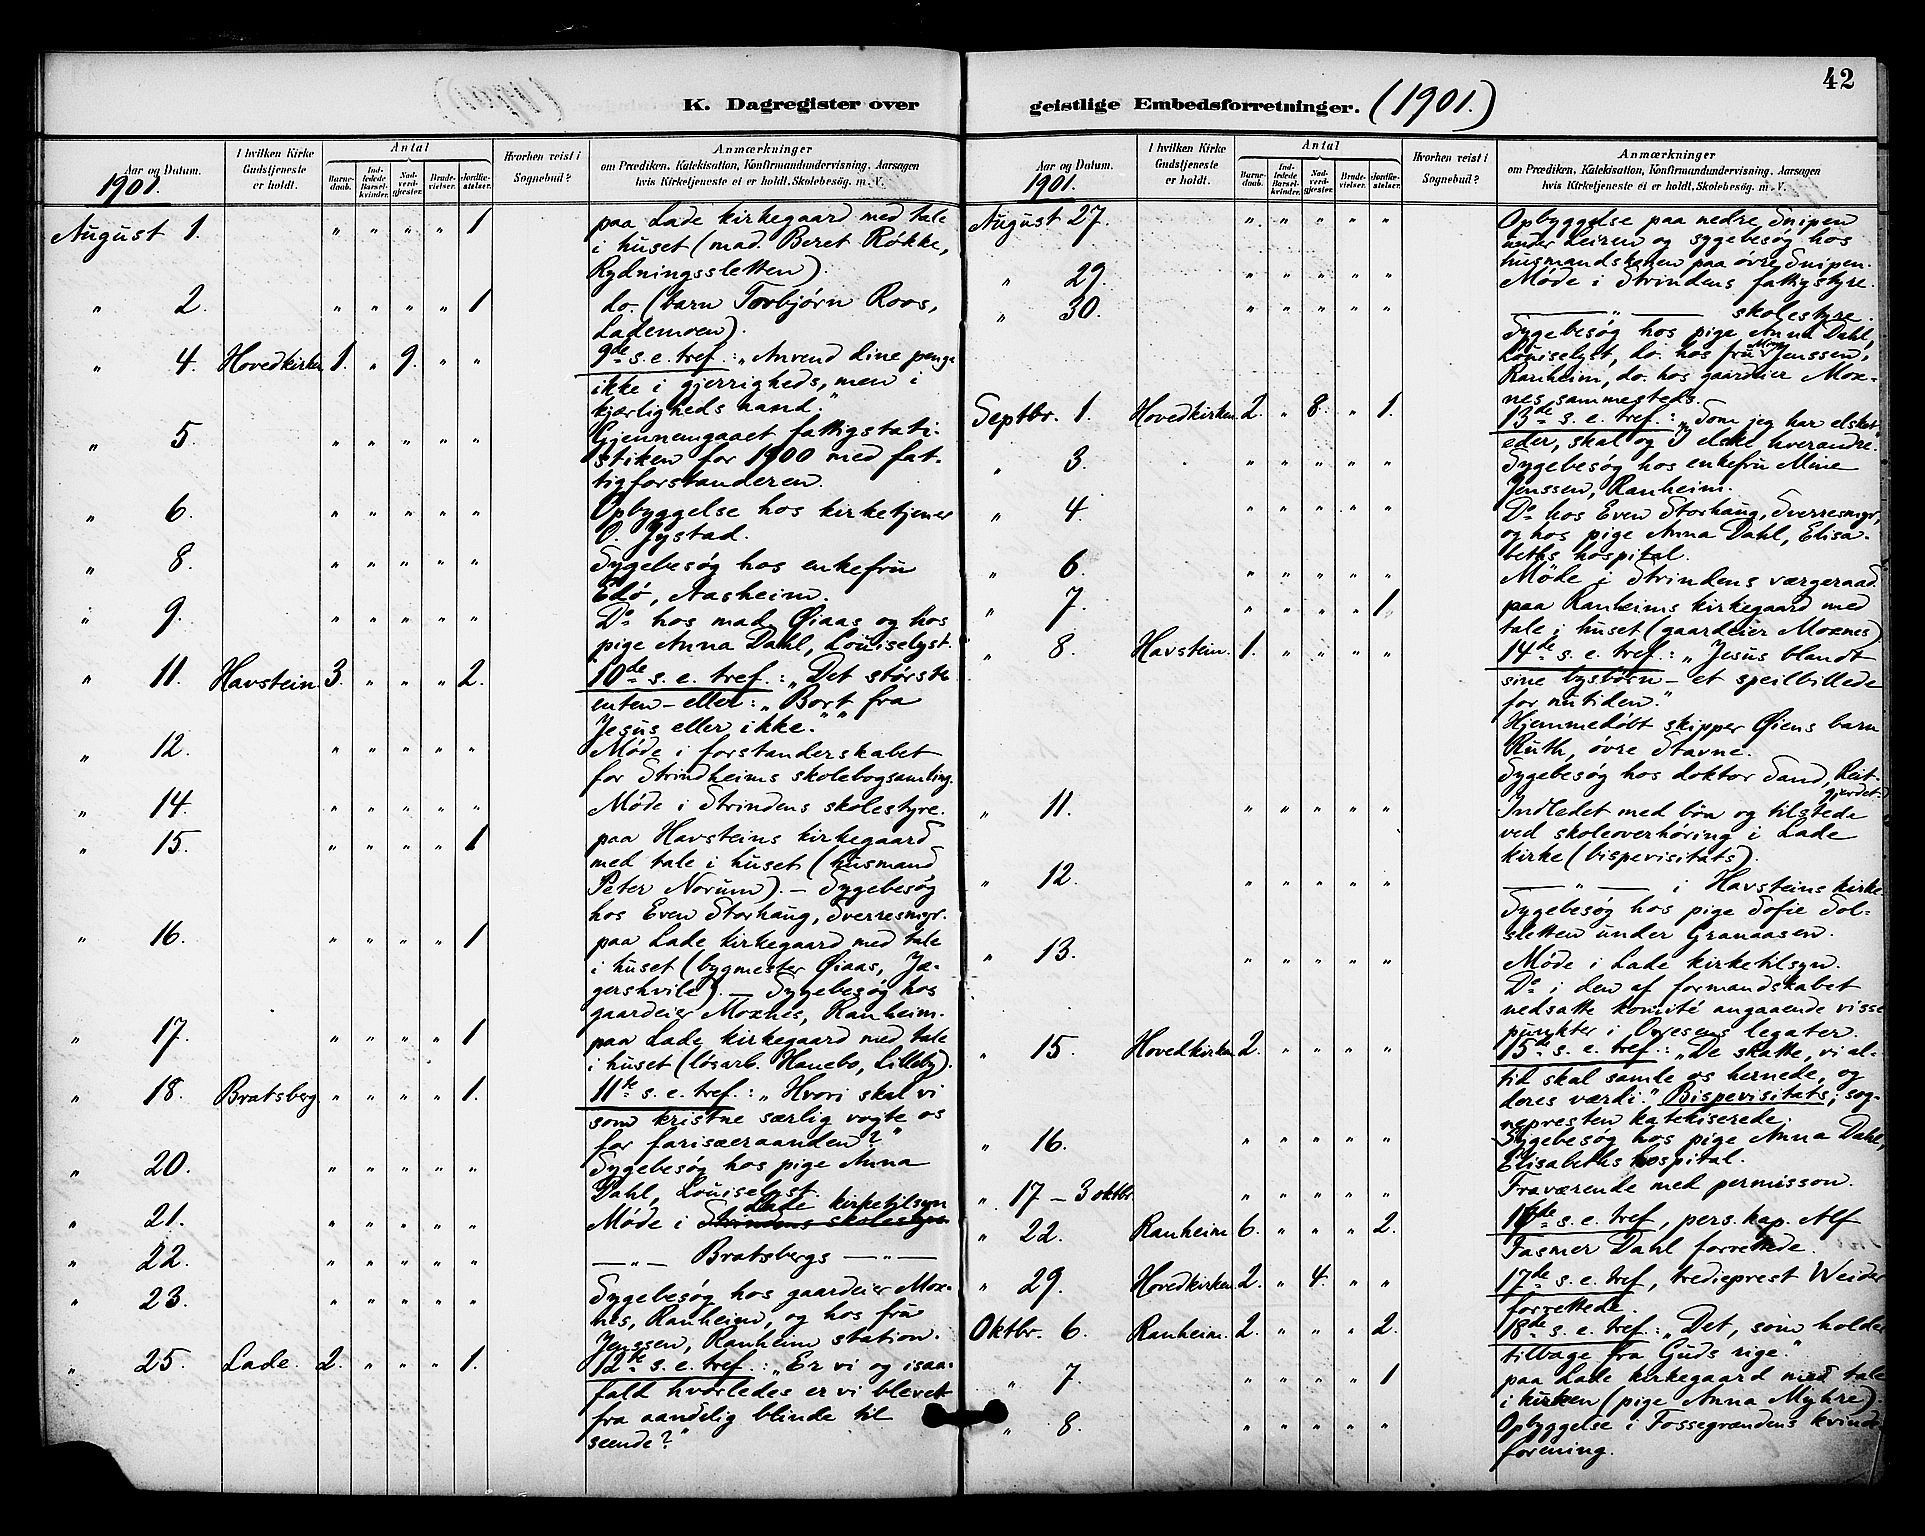 42
K. Dagregister over geistlige Embedsforretninger. (1901.)
Aar og Datum.
1901.
I hvilken Kirke Gudstjeneste er holdt.
Antal
Barnedaab.
Indledede Barselkvinder.
Nadverdgjester.
Brudevielser.
Jordfæstelser.
Hvorhen reist i Sognebud?
Anmærkninger
om Prædiken, Katekisation, Konfirmandundervisning, Aarsagen
hvis Kirketjeneste ei er holdt, Skolebesøg. m. V.
August 1. " " " " 1 paa Lade kirkegaard med tale
i huset (mad. Beret Røkke,
Rydningssletten).
" 2. " " " " 1 do. (barn Torbjørn Roos,
Lademoen).
" 4. Hovedkirken 1. " 9. " " 9de s. e. tref.: "Anvend dine penge
ikke i gjerrigheds, men i
kjærligheds aand."
" 5. " " " " " Gjennemgaaet fattigstati-
stiken for 1900 med fat-
tigforstanderen.
" 6. " " " " " Opbyggelse hos kirketjener
O. Jystad.
" 8. " " " " " Sygebesøg hos enkefru
Edø, Aasheim.
" 9. " " " " " Do hos mad. Øiaas og hos
pige Anna Dahl, Louiselyst.
" 11. Havstein. 3. " " " 2. 10de s. e. tref.: "Det største
enten – eller: "Bort fra
Jesus eller ikke.""
" 12. " " " " " Møde i forstanderskabet
for Strindheims skolebogsamling.
" 14. " " " " " Møde i Strindens skolestyre.
" 15. " " " " 1 paa Havsteins kirkegaard
med tale i huset (husmand
Peter Norum). – Sygebesøg
hos Even Storhaug, Sverresmgr.
" 16. " " " " 1 paa Lade kirkegaard med tale
i huset (bygmester Øiaas, Jæ-
gershvile). – Sygebesøg hos
gaardeier Moxnes, Ranheim.
" 17. " " " " 1 paa Lade kirkegaard med tale
i huset (løsarb. Hanebo, Lilleby).
" 18. Bratsberg. " " " " 1. 11te s. e. tref.: "Hvori skal vi
som kristne særlig vogte os
for farisæeraanden?"
" 20. " " " " " Sygebesøg hos pige Anna
Dahl, Louiselyst.
Lade kirketilsyn
" 21. " " " " " Møde i Strindens skolestyre
" 22. " " " " " —"— Bratsbergs —"—
" 23. " " " " " Sygebesøg hos gaardeier Mox-
nes, Ranheim, og hos fru
Jenssen, Ranheim station.
" 25. Lade. 2. " " " 1. 12te s. e. tref.: "Er vi og isaa-
fald hvorledes er vi blevet
fra aandelig blinde til
seende?"
Aar og Datum.
1901.
I hvilken Kirke Gudstjeneste er holdt.
Antal
Barnedaab.
Indledede Barselkvinder.
Nadverdgjester.
Brudevielser.
Jordfæstelser.
Hvorhen reist i Sognebud?
Anmærkninger
om Prædiken, Katekisation, Konfirmandundervisning, Aarsagen
hvis Kirketjeneste ei er holdt, Skolebesøg. m. V.
August 27. " " " " " Opbyggelse paa nedre Snipen
under Leiren og sygebesøg hos
husmandskonen paa øvre Snipen.
" 29. " " " " " Møde i Strindens fattigstyre.
" 30. " " " " " —"— skolestyre.
Sygebesøg hos pige Anna Dahl,
Louiselyst, do. hos fru Mine Jenssen,
Ranheim, do. hos gaardeier Mox-
nes sammesteds.
Septbr. 1. Hovedkirken 2. " 8. " 1. 13de s. e. tref.: "Som jeg har elsket
eder, skal og I elske hverandre."
" 3. " " " " " Sygebesøg hos enkefru Mine
Jenssen, Ranheim.
" 4. " " " " " Do hos Even Storhaug, Sverresmgr,
og hos pige Anna Dahl, Elisa-
beths hospital.
" 6. " " " " " Møde i Strindens værgeraad
" 7. " " " " 1. paa Ranheims kirkegaard med
tale i huset (gaardeier Moxnes)
" 8. Havstein. 1. " " " " 14de s. e. tref.: "Jesus blandt
sine bysbørn – et speilbillede
for nutiden."
Hjemmedøbt skipper Øiens barn
Ruth, øvre Stavne.
Sygebesøg hos doktor Sand, Reit-
gjerdet.
" 11. " " " " " Indledet med bøn og tilstede
ved skoleoverhøring i Lade
kirke (bispevisitats).
" 12. " " " " " —"— i Havsteins kirke
Sygebesøg hos pige Sofie Sol-
sletten under Granaasen.
" 13. " " " " " Møde i Lade kirketilsyn.
Do i den af formandskabet
nedsatte komité angaaende visse
punkter i Ovesens legater.
" 15. Hovedkirken 2. " " " " 15de s. e. tref.: "De skatte, vi al-
tid skal samle os hernede, og
deres værdi." Bispevisitats; sog-
nepresten katekiserede.
" 16. " " " " " Sygebesøg hos pige Anna Dahl,
Elisabeths hospital.
" 17 – 3 oktbr. " " " " " Fraværende med permisson.
" 22. Ranheim 6. " " " 2. 16de s. e. tref, pers. kap. Alf
Fasmer Dahl forrettede.
" 29. Hovedkirken 2. " 4. " " 17de s. e. tref, tredieprest Weider
forrettede.
Oktbr. 6. Ranheim. 2. " " " 2. 18de s. e. tref.: "Det, som holder
tilbage fra Guds rige."
" 7. " " " " 1 paa Lade kirkegaard med tale
i kirken (pige Anna Myhre).
" 8. " " " " " Opbyggelse i Fossegrændens kvinde-
forening.